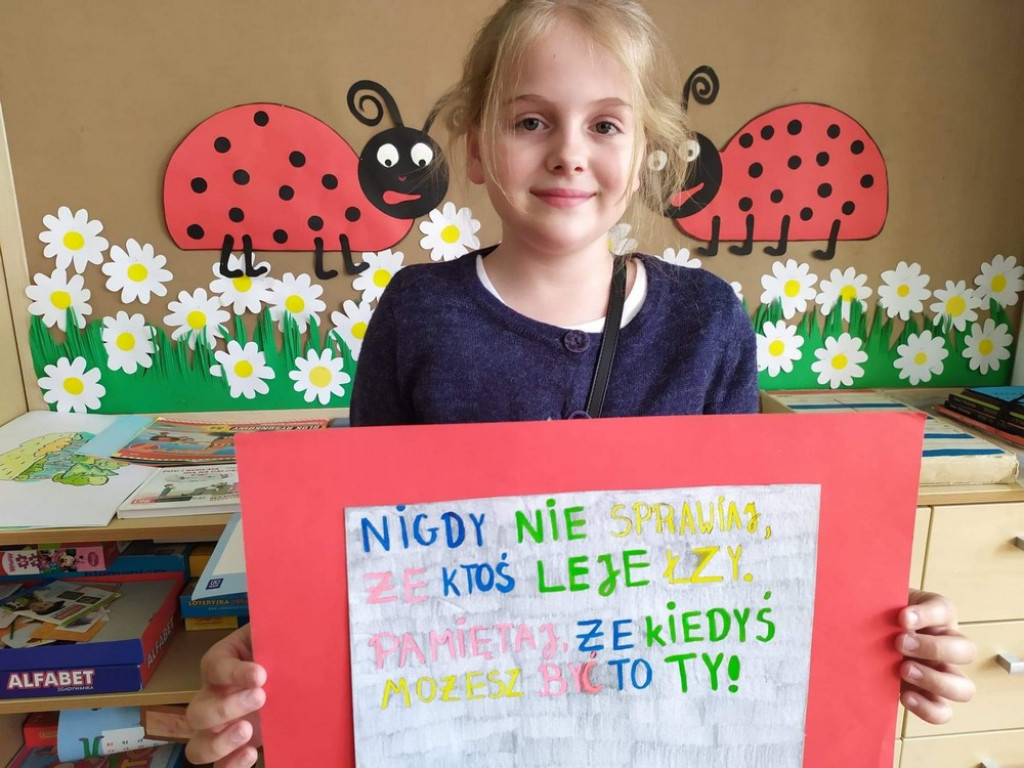 NIGDY NIE SPRAWIAJ,
ŻE KTOŚ LEJE ŁZY.
PAMIĘTAJ, ŻE KIEDYŚ
MOŻESZ BYĆ TO TY!
BLOK RYSUNKOWY
ALFABET
LOTERYJKA